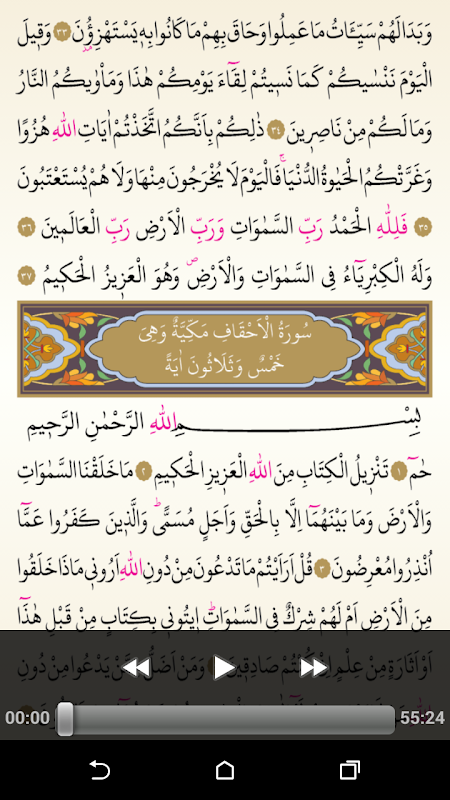 وَبَدَالَهُمْ سَيِّـَٔاتُ مَا عَمِلُوا وَحَاقَ بِهِمْ مَا كَانُوا بِه۪ يَسْتَهْزِؤُ۫نَ ٣٣ وَق۪يلَ
الْيَوْمَ نَنْسٰيكُمْ كَمَا نَس۪يتُمْ لِقَٓاءَ يَوْمِكُمْ هٰذَا وَمَأْوٰيكُمُ النَّارُ
وَمَا لَكُمْ مِنْ نَاصِر۪ينَ ٣٤ ذٰلِكُمْ بِاَنَّكُمُ اتَّخَذْتُمْ اٰيَاتِ اللّٰهِ هُزُوًا
وَغَرَّتْكُمُ الْحَيٰوةُ الدُّنْيَاۚ فَالْيَوْمَ لَا يُخْرَجُونَ مِنْهَا وَلَا هُمْ يُسْتَعْتَبُونَ
٣٥ فَلِلّٰهِ الْحَمْدُ رَبِّ السَّمٰوَاتِ وَرَبِّ الْاَرْضِ رَبِّ الْعَالَم۪ينَ ٣٦
وَلَهُ الْكِبْرِيَٓاءُ فِي السَّمٰوَاتِ وَالْاَرْضِۖ وَهُوَ الْعَز۪يزُ الْحَك۪يمُ ٣٧
سُورَةُ الْاَحْقَافِ مَكِّيَّةٌ وَهِيَ
خَمْسٌ وَثَلَاثُونَ اٰيَةً
بِسْمِ اللّٰهِ الرَّحْمٰنِ الرَّح۪يمِ
حٰمٓ ١ تَنْز۪يلُ الْكِتَابِ مِنَ اللّٰهِ الْعَز۪يزِ الْحَك۪يمِ ٢ مَا خَلَقْنَا السَّمٰوَاتِ
وَالْاَرْضَ وَمَا بَيْنَهُمَٓا اِلَّا بِالْحَقِّ وَاَجَلٍ مُسَمًّىۜ وَالَّذ۪ينَ كَفَرُوا عَمَّٓا
اُنْذِرُوا مُعْرِضُونَ ٣ قُلْ اَرَاَيْتُمْ مَا تَدْعُونَ مِنْ دُونِ اللّٰهِ اَرُون۪ي مَاذَا خَلَقُوا
مِنَ الْاَرْضِ اَمْ لَهُمْ شِرْكٌ فِي السَّمٰوَاتِۜ ا۪يتُون۪ي بِكِتَابٍ مِنْ قَبْلِ هٰذَٓا
اَوْ اَثَارَةٍ مِنْ عِلْمٍ اِنْ كُنْتُمْ صَادِق۪ينَ وَمَنْ اَضَلُّ مِمَّنْ يَدْعُوا مِنْ دُونِ
00:00 55:24